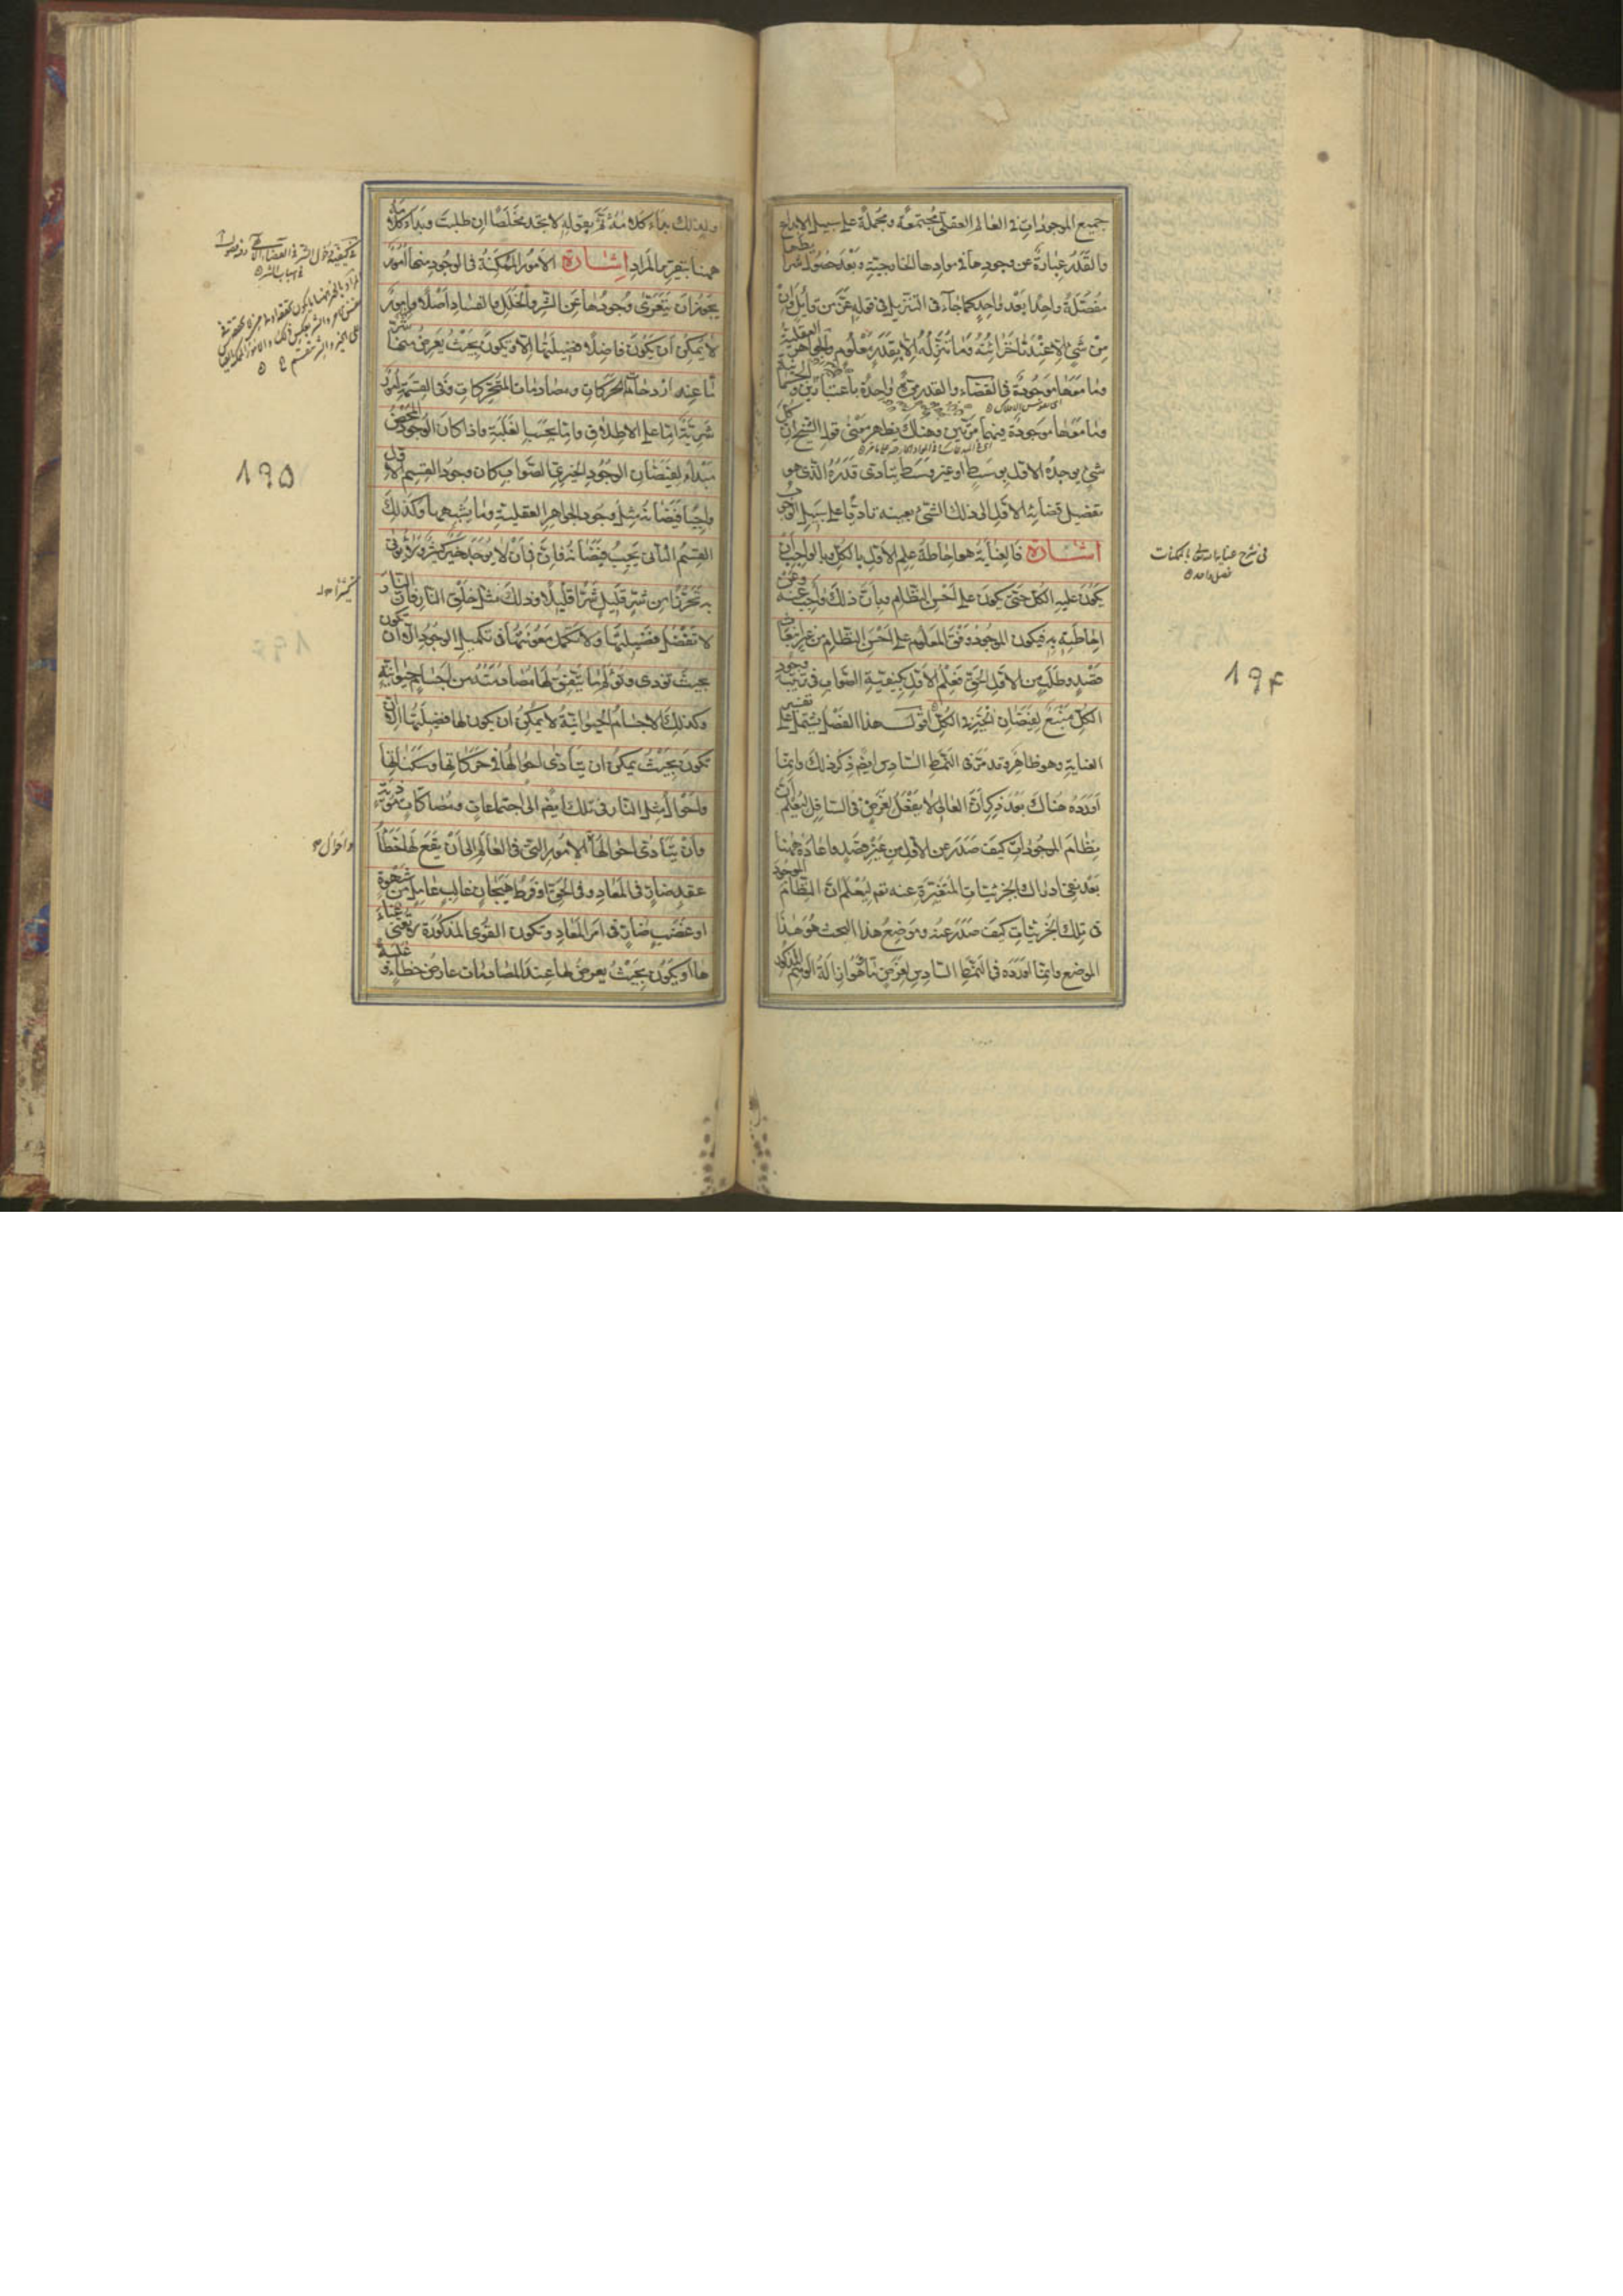 جميع الموجودات فى العالم العقلى مجتمعة ومجملة على سبيل الابداع
والقدر عبارة عن وجودها فى موادها الخارجية وبعد حصول شرائطها
مفصلة واحدا بعد واحد كما جاء فى التنزيل فى قوله عز من قائل وان
من شئ الا عندنا خزائنه وما ننزله الا بقدر معلوم والجواهر العقلية
وما معها موجودة فى القضاء والقدر مرة واحدة باعتبارين والجسمانية
وما معها موجودة فيهما مرتين وهناك يظهر معنى قول الشيخ ان كل
شئ يوجده الاول بوسط او غير وسط يتادى قدره الذى هو
تفصيل قضائه الاول الى ذلك الشئ بعينه تاديا على سبيل الوجوب
اشارة فالعناية هو احاطة علم الاول بالكل وبالواجب ان
يكون عليه الكل حتى يكون على احسن النظام وبان ذلك واجب عنه وعن
احاطته به فيكون الموجود وفق المعلوم على احسن النظام من غير انبعاث
قصد وطلب من الاول الحق فعلم الاول بكيفية الصواب فى ترتيب وجود
الكل منبع لفيضان الخير فى الكل اقول هذا الفصل يشتمل على تفسير
العناية وهو ظاهر وقد مر فى النمط السادس ايضم ذكر ذلك وانما
اورده هناك بعد ذكر ان العالى لا يفعل لغرض فى السافل ليعلم ان
نظام الموجودات كيف صدر عن الاول من غير قصد واعاده ههنا
بعد نفى ادراك الجزئيات المتغيرة عنه نعم ليعلم ان النظام الموجود
فى تلك الجزئيات كيف صدر عنه وموضع هذا البحث هو هذا
الموضع وانما اورده فى النمط السادس لغرض ما هو ازالة الوهم المذكور
فى شرح عناية الله تعالى بالممكنات
فصل واحد
194
ولذلك بداء كلامه ثم بقوله لا تجد مخلصا ان طلبت وبداء كلامه
ههنا بتقرير المراد اشارة الامور الممكنة فى الوجود منها امور
يجوز ان يتعرى وجودها عن الشر والخلل والفساد اصلا وامور
لا يمكن ان يكون فاضلا فضيلتها الا ويكون بحيث يعرض منها شر
ما عند ازدحامات الحركات ومصادمات المتحركات وفى القسمة امور
شرية اما على الاطلاق واما بحسب الغلبة واذا كان الوجود المحض
مبداء لفيضان الوجود الخيرى الصواب كان وجود القسم الاول
واجبا فيضانه مثل وجود الجواهر العقلية وما يشبهها وكذلك
القسم الثانى يجب فيضانه فان فى ان لا يوجد خير كثير ولا يؤتى
به تحرزا من شر قليل شرا قليلا وذلك مثل خلق النار فان النار
لا تفضل فضيلتها ولا تكمل معونتها فى تكميل الوجود الا ان تكون
بحيث تؤدى وتؤلم ما يتفق لها مصادمته من اجسام حيوانية
وكذلك الاجسام الحيوانية لا يمكن ان يكون لها فضيلتها الا ان
تكون بحيث يمكن ان يتادى احوالها فى حركاتها وسكناتها
واحوال مثل النار فى تلك ايضم الى اجتماعات ومصاكات موذية
وان يتادى احوالها الامور التى فى العالم الى ان يقع لها خطأ
عقد ضار فى المعاد وفى الحق او فرط هيجان غالب عامل من شهوة
او غضب ضار فى امر المعاد وتكون القوى المذكورة لا تغنى غناء
ها او يكون بحيث يعرض لها عند المصادمات عارض خطاء و غلبة
كثير شرا
واحوال
195